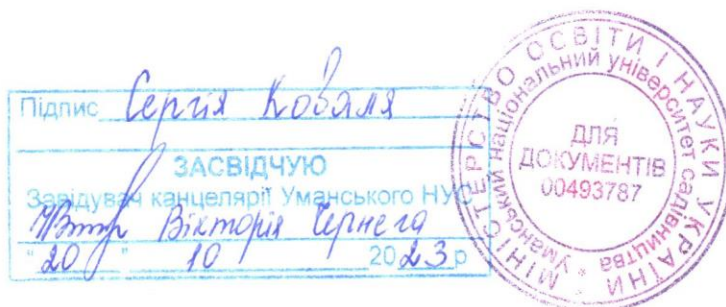 Підпис Сергія Коваля
ЗАСВІДЧУЮ
Завідувач канцелярії Уманського НУС
Вікторія Чернега
"20" 10 2023 р
МІНІСТЕРСТВО ОСВІТИ І НАУКИ УКРАЇНИ *
Уманський національний університет садівництва *
ДЛЯ
ДОКУМЕНТІВ
00493787